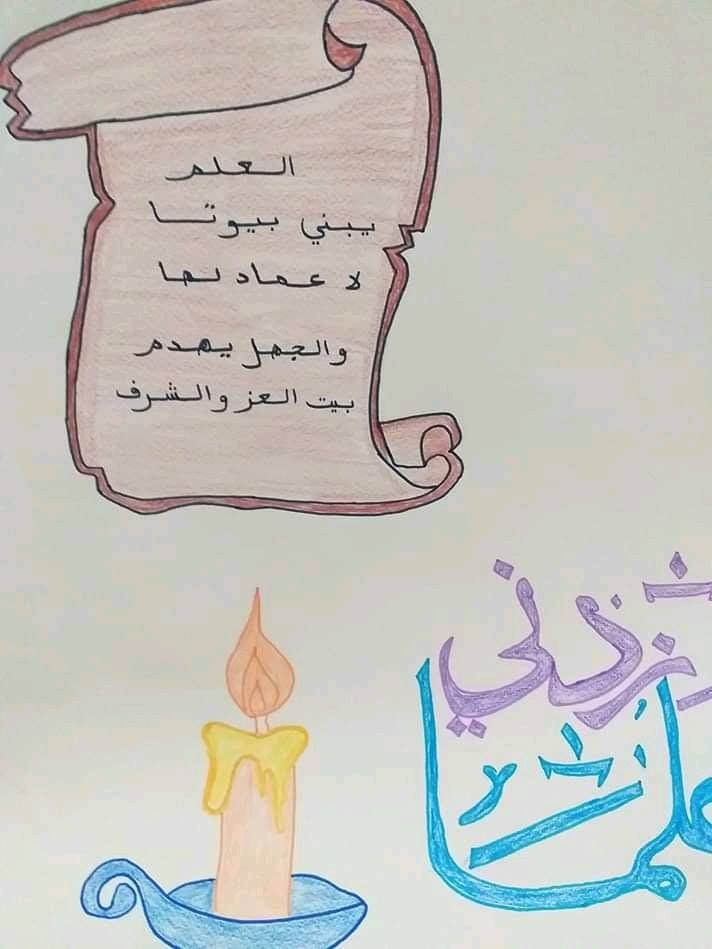 العلم
يبني بيوتا
لا عماد لها
والجهل يهدم
بيت العز والشرف
زدني
علما